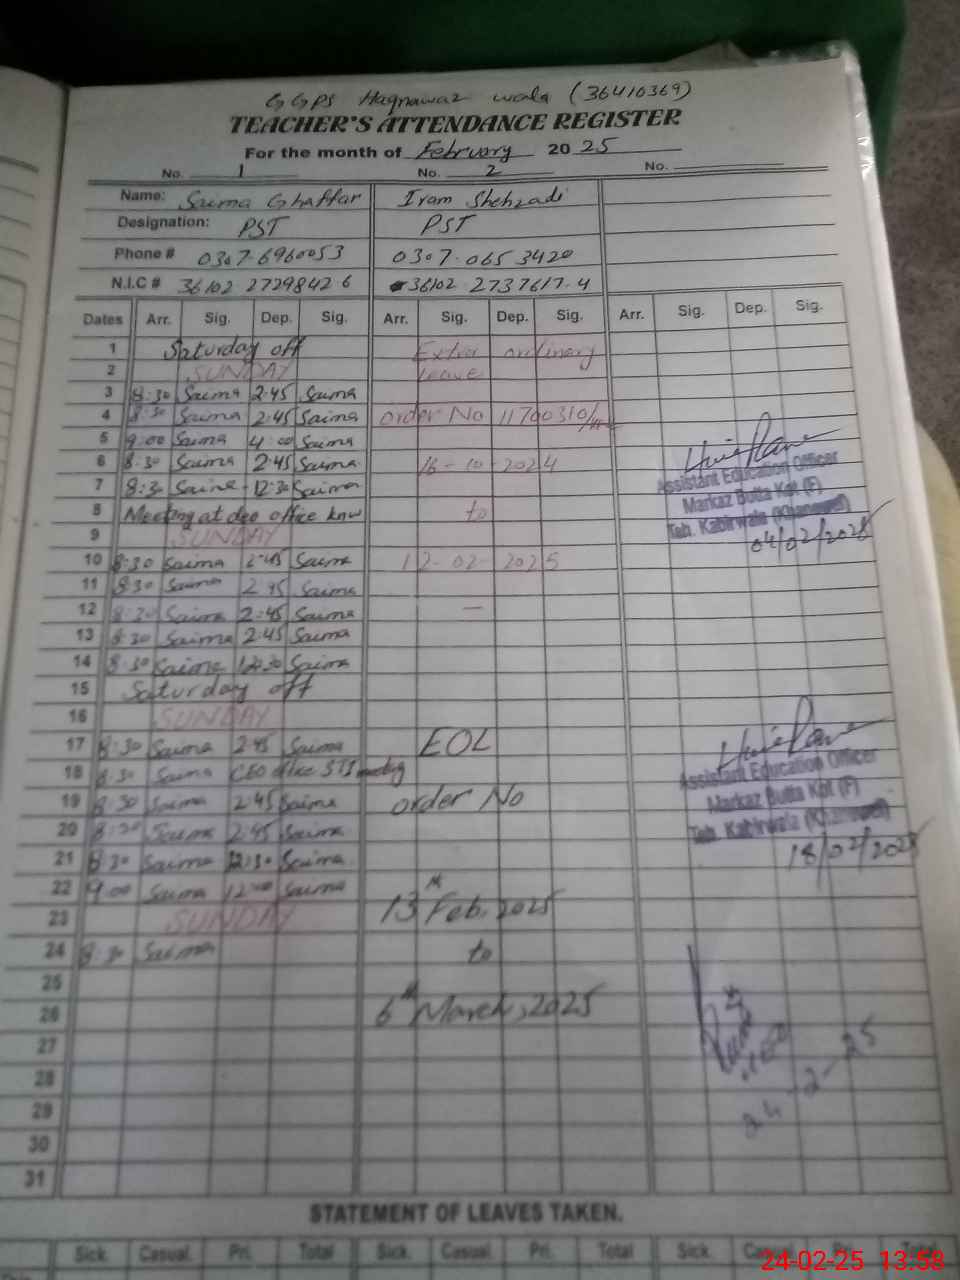 GGPS Haqnawaz wala (36410369)
TEACHER'S ATTENDANCE REGISTER
For the month of February 2025
No. 1 No. 2 No.
Name: Saima Ghaffar Iram Shehzadi
Designation: PST PST
Phone # 0307-6960053 0307-065 3420
N.I.C # 36102 2729842-6 36102-2737617-4
Dates Arr. Sig. Dep. Sig. Arr. Sig. Dep. Sig. Arr. Sig. Dep. Sig.
1 Saturday off Extra ordinary
2 SUNDAY leave
3 8:30 Saima 2:45 Saima
4 8:30 Saima 2:45 Saima order No 11700310/
5 9:00 Saima 4:00 Saima
6 8:30 Saima 2:45 Saima 16-10-2024
7 8:30 Saima 12:30 Saima
8 Meeting at deo office knw to
9 SUNDAY
Assistant Education Officer
Markaz Butta Kot (F)
Teh. Kabirwala (Khanewal)
04/02/2025
10 8:30 Saima 2:45 Saima 12-02-2025
11 8:30 Saima 2:45 Saima
12 8:30 Saima 2:45 Saima —
13 8:30 Saima 2:45 Saima
14 8:30 Saima 12:30 Saima
15 Saturday off
16 SUNDAY
17 8:30 Saima 2:45 Saima EOL
18 8:30 Saima CEO office STI meeting
19 8:30 Saima 2:45 Saima order No
20 8:30 Saima 2:45 Saima
Assistant Education Officer
Markaz Butta Kot (F)
Teh. Kabirwala (Khanewal)
18/02/2025
21 8:30 Saima 12:30 Saima
22 9:00 Saima 12:00 Saima
23 SUNDAY 13th Feb, 2025
24 8:30 Saima to
25
26 6th March, 2025
27
28
24-2-25
29
30
31
STATEMENT OF LEAVES TAKEN.
Sick. Casual. Pri. Total Sick. Casual. Pri. Total Sick. Casual Pri. Total
24-02-25 13:58